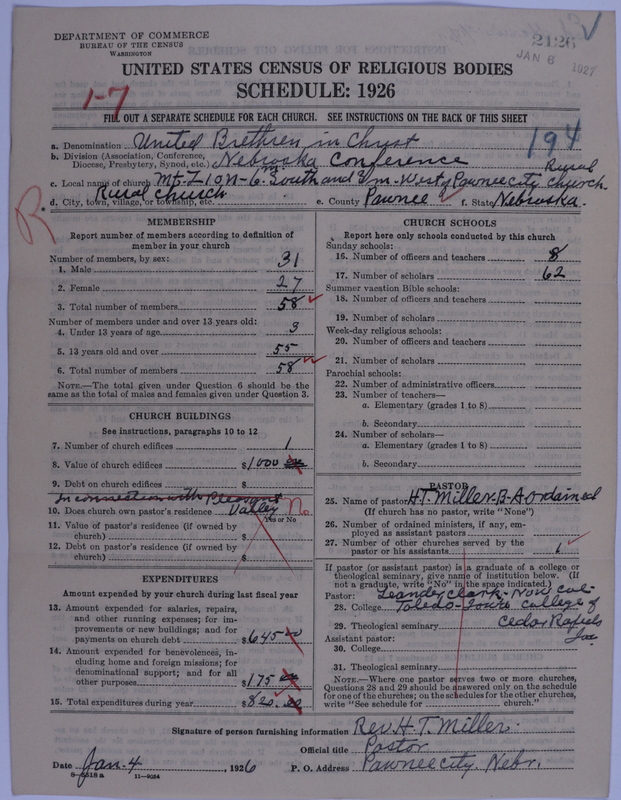 DEPARTMENT OF COMMERCE
BUREAU OF THE CENSUS
WASHINGTON
2126
JAN 6 1927
UNITED STATES CENSUS OF RELIGIOUS BODIES
SCHEDULE: 1926
1-7
FILL OUT A SEPARATE SCHEDULE FOR EACH CHURCH. SEE INSTRUCTIONS ON THE BACK OF THIS SHEET
194
a. Denomination United Brethren in Christ
b. Division (Association, Conference, Diocese, Presbytery, Synod, etc.) Nebraska Conference
Rural
c. Local name of church Mt-Zion-6 m South and 3 m-West of Pawnee city Church
d. City, town, village, or township, etc. Rural church e. County Pawnee f. State Nebraska.
R
MEMBERSHIP
Report number of members according to definition of member in your church
Number of members, by sex:
1. Male 31
2. Female 27
3. Total number of members 58
Number of members under and over 13 years old:
4. Under 13 years of age 3
5. 13 years old and over 55
6. Total number of members 58
NOTE.—The total given under Question 6 should be the
same as the total of males and females given under Question 3.
CHURCH BUILDINGS
See instructions, paragraphs 10 to 12
7. Number of church edifices 1
8. Value of church edifices $1000 00
9. Debt on church edifices
In connection with Pleasant
10. Does church own pastor's residence Valley No
Yes or No
11. Value of pastor's residence (if owned by
church) $
12. Debt on pastor's residence (if owned by
church) $
EXPENDITURES
Amount expended by your church during last fiscal year
13. Amount expended for salaries, repairs,
and other running expenses; for im-
provements or new buildings; and for
payments on church debt $645 00
14. Amount expended for benevolences, in-
cluding home and foreign missions; for
denominational support; and for all
other purposes $175 00
15. Total expenditures during year $820. 00
CHURCH SCHOOLS
Report here only schools conducted by this church
Sunday schools:
16. Number of officers and teachers 8
17. Number of scholars 62
Summer vacation Bible schools:
18. Number of officers and teachers
19. Number of scholars
Week-day religious schools:
20. Number of officers and teachers
21. Number of scholars
Parochial schools:
22. Number of administrative officers
23. Number of teachers—
a. Elementary (grades 1 to 8)
b. Secondary
24. Number of scholars—
a. Elementary (grades 1 to 8)
b. Secondary
PASTOR
25. Name of pastor H.T. Miller-B-A ordained
(If church has no pastor, write "None")
26. Number of ordained ministers, if any, em-
ployed as assistant pastors
27. Number of other churches served by the
pastor or his assistants 1
If pastor (or assistant pastor) is a graduate of a college or
theological seminary, give name of institution below. (If
not a graduate, write "No" in the space indicated.)
Pastor: Leander Clark-Now coe-
28. College Toledo-Iowa college of
29. Theological seminary Cedar Rapids
Assistant pastor: Ia
30. College
31. Theological seminary
NOTE.—Where one pastor serves two or more churches,
Questions 28 and 29 should be answered only on the schedule
for one of the churches; on the schedules for the other churches,
write "See schedule for church."
Signature of person furnishing information Rev. H. T. Miller.
Official title Pastor
Date Jan-4, 1926 P. O. Address Pawnee city. Nebr.
8-5518 a 11-9084